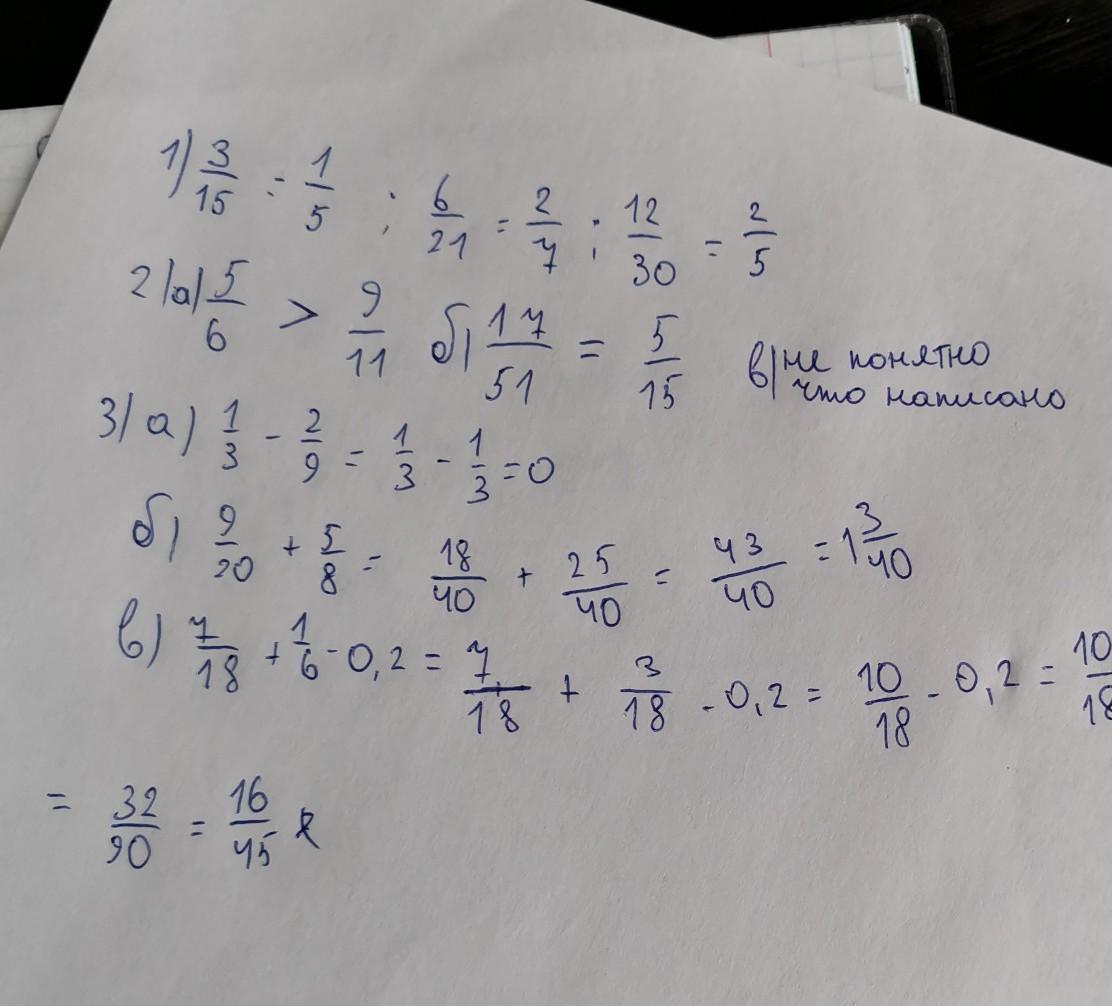 1) 3/15 = 1/5 ; 6/21 = 2/7 ; 12/30 = 2/5
2) а) 5/6 > 9/11 б) 17/51 = 5/15 в) не понятно
что написано
3) а) 1/3 - 2/9 = 1/3 - 1/3 = 0
б) 9/20 + 5/8 = 18/40 + 25/40 = 43/40 = 1 3/40
в) 7/18 + 1/6 - 0,2 = 7/18 + 3/18 - 0,2 = 10/18 - 0,2 = 10/18
= 32/90 = 16/45